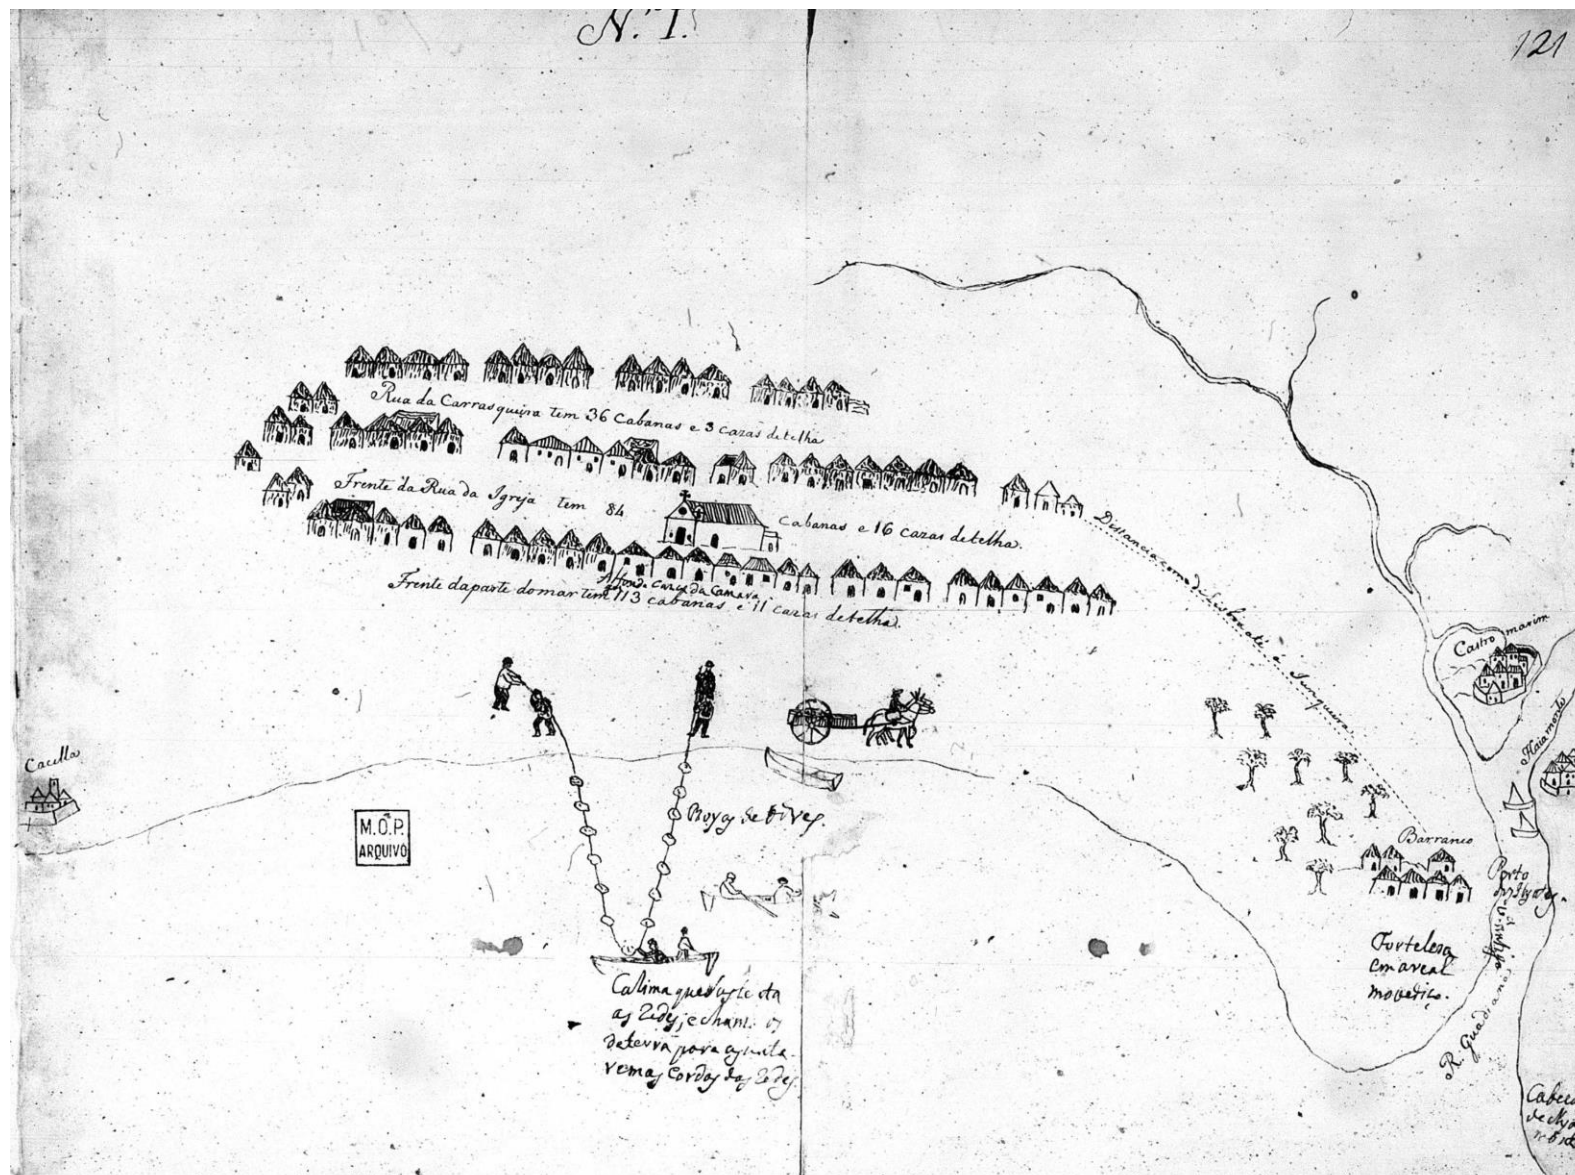 N.º 1.
121
Rua da Carrasqueira tem 36 Cabanas e 3 cazas de telha
Frente da Rua da Igreja tem 84 cabanas e 16 cazas de telha.
Frente da parte do mar tem 113 cabanas e 11 cazas de telha.
caza da Camara
Distancia
até a Junqueira
Castro marim
Haiamonte
Cacella
M.O.P.
ARQUIVO
Boyas de
Barranco
Porto
Fortelesa
em areal
movediço.
R. Guadiana
Calima que
as Redes, e cham. os
de terra para
rem as Cordas das Redes.